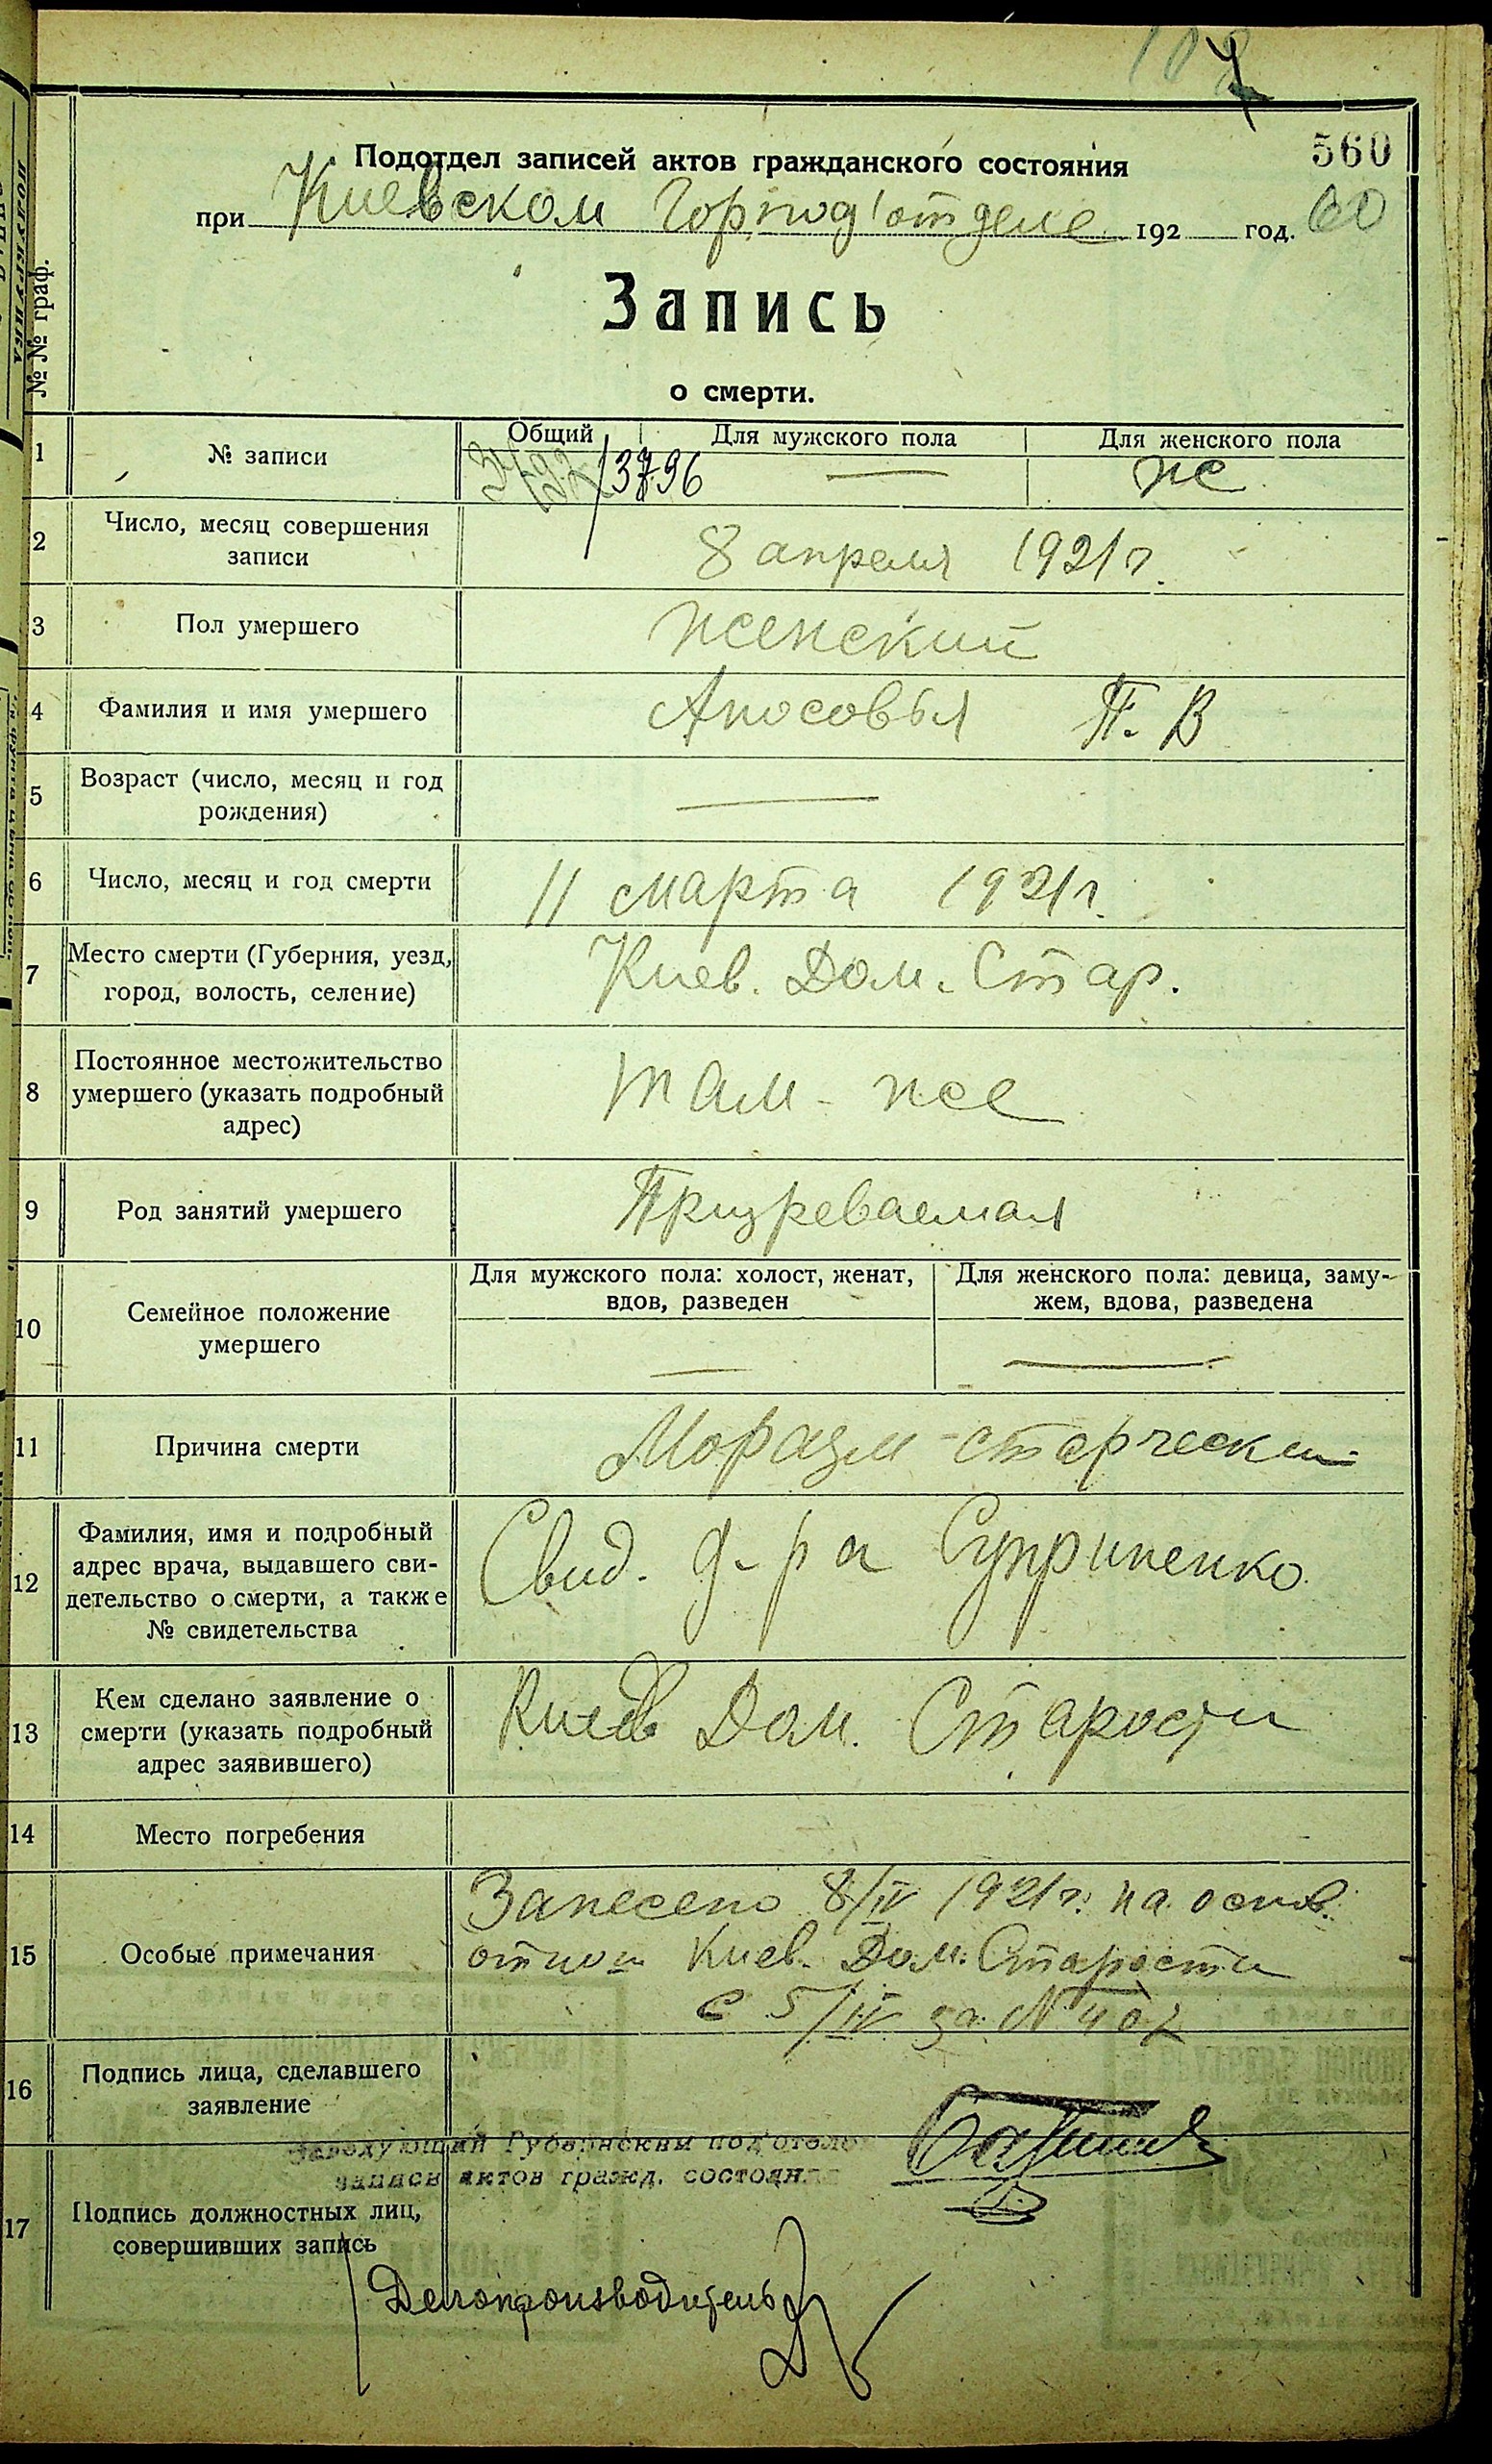 560
Подотдел записей актов гражданского состояния
при Киевском Горпод'отделе 192 год. 60
Запись
о смерти.
№ № граф.
1 № записи Общий Для мужского пола Для женского пола
3796 — же
2 Число, месяц совершения
записи
8 апреля 1921 г.
3 Пол умершего женский
4 Фамилия и имя умершего П. В
5 Возраст (число, месяц и год
рождения) —
6 Число, месяц и год смерти 11 марта 1921 г.
7 Место смерти (Губерния, уезд,
город, волость, селение)
Киев. Дом. Стар.
8 Постоянное местожительство
умершего (указать подробный
адрес)
там-же
9 Род занятий умершего Призреваемая
10 Семейное положение
умершего
Для мужского пола: холост, женат,
вдов, разведен
Для женского пола: девица, заму-
жем, вдова, разведена
— —
11 Причина смерти Моразм старческий
12 Фамилия, имя и подробный
адрес врача, выдавшего сви-
детельство о смерти, а также
№ свидетельства
Свид. д-ра Суприненко
13 Кем сделано заявление о
смерти (указать подробный
адрес заявившего)
Киев Дом. Старости
14 Место погребения
15 Особые примечания
Занесено 8/IV 1921 г. на основ.
отнош Киев. Дом. Старости
с 5/IV за N 407
16 Подпись лица, сделавшего
заявление
Заведующий Губернскы под'отдело
запись актов гражд. состоян
17 Подпись должностных лиц,
совершивших запись
Делопроизводитель